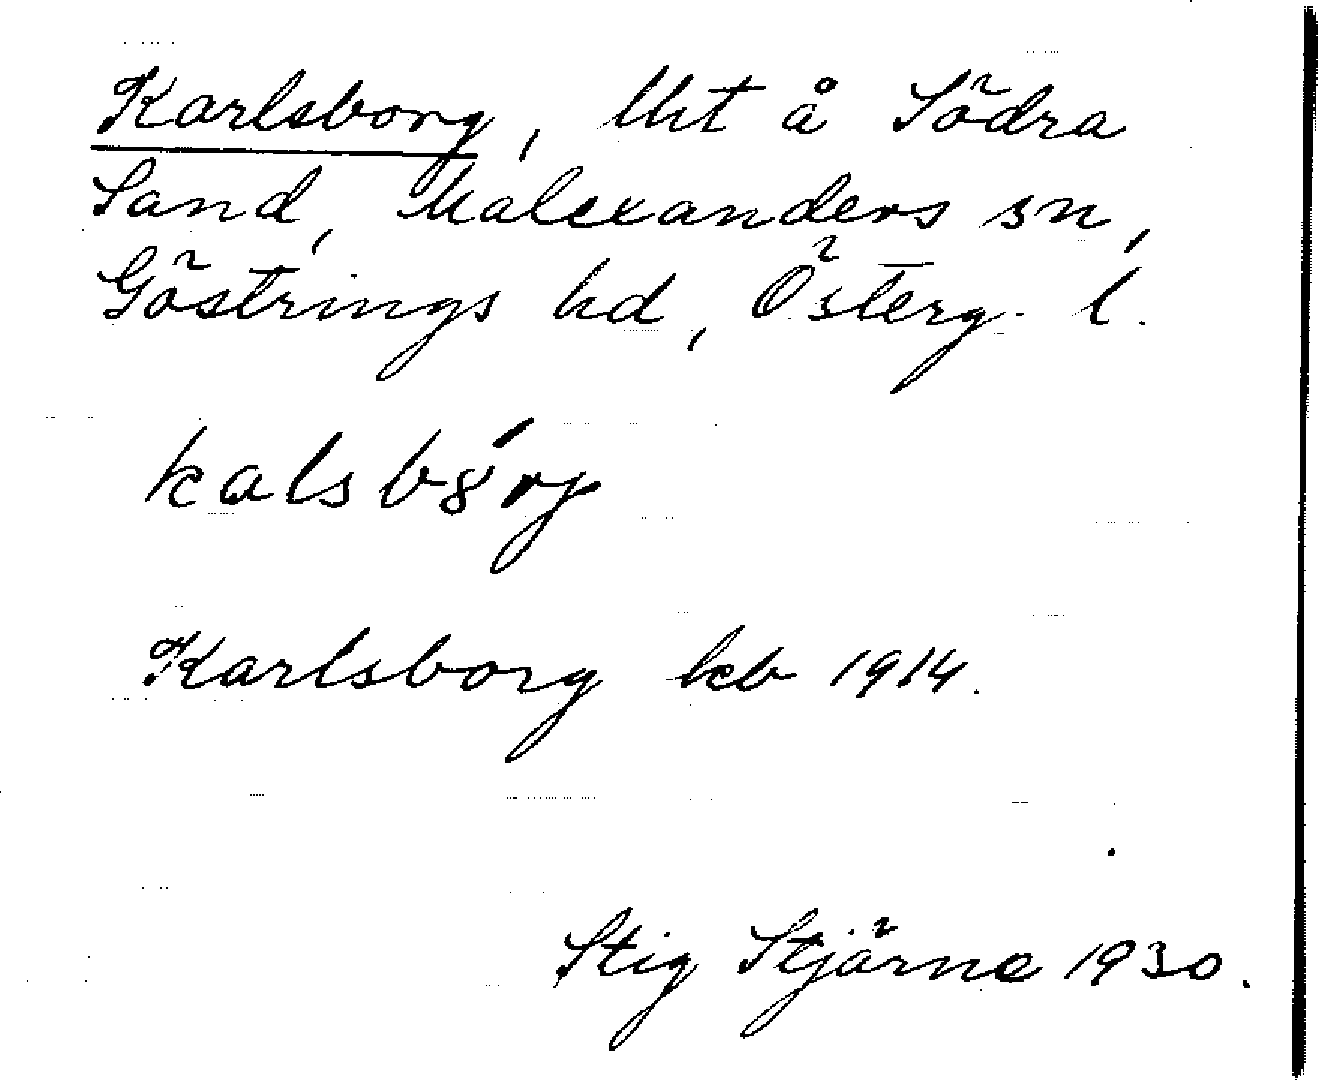 Karlsborg, lht å Södra
Sand, Malexanders sn,
Göstrings hd, Österg. l.
kalsbȣ́rj
Karlsborg kb 1914.
Stig Stjärne 1930.